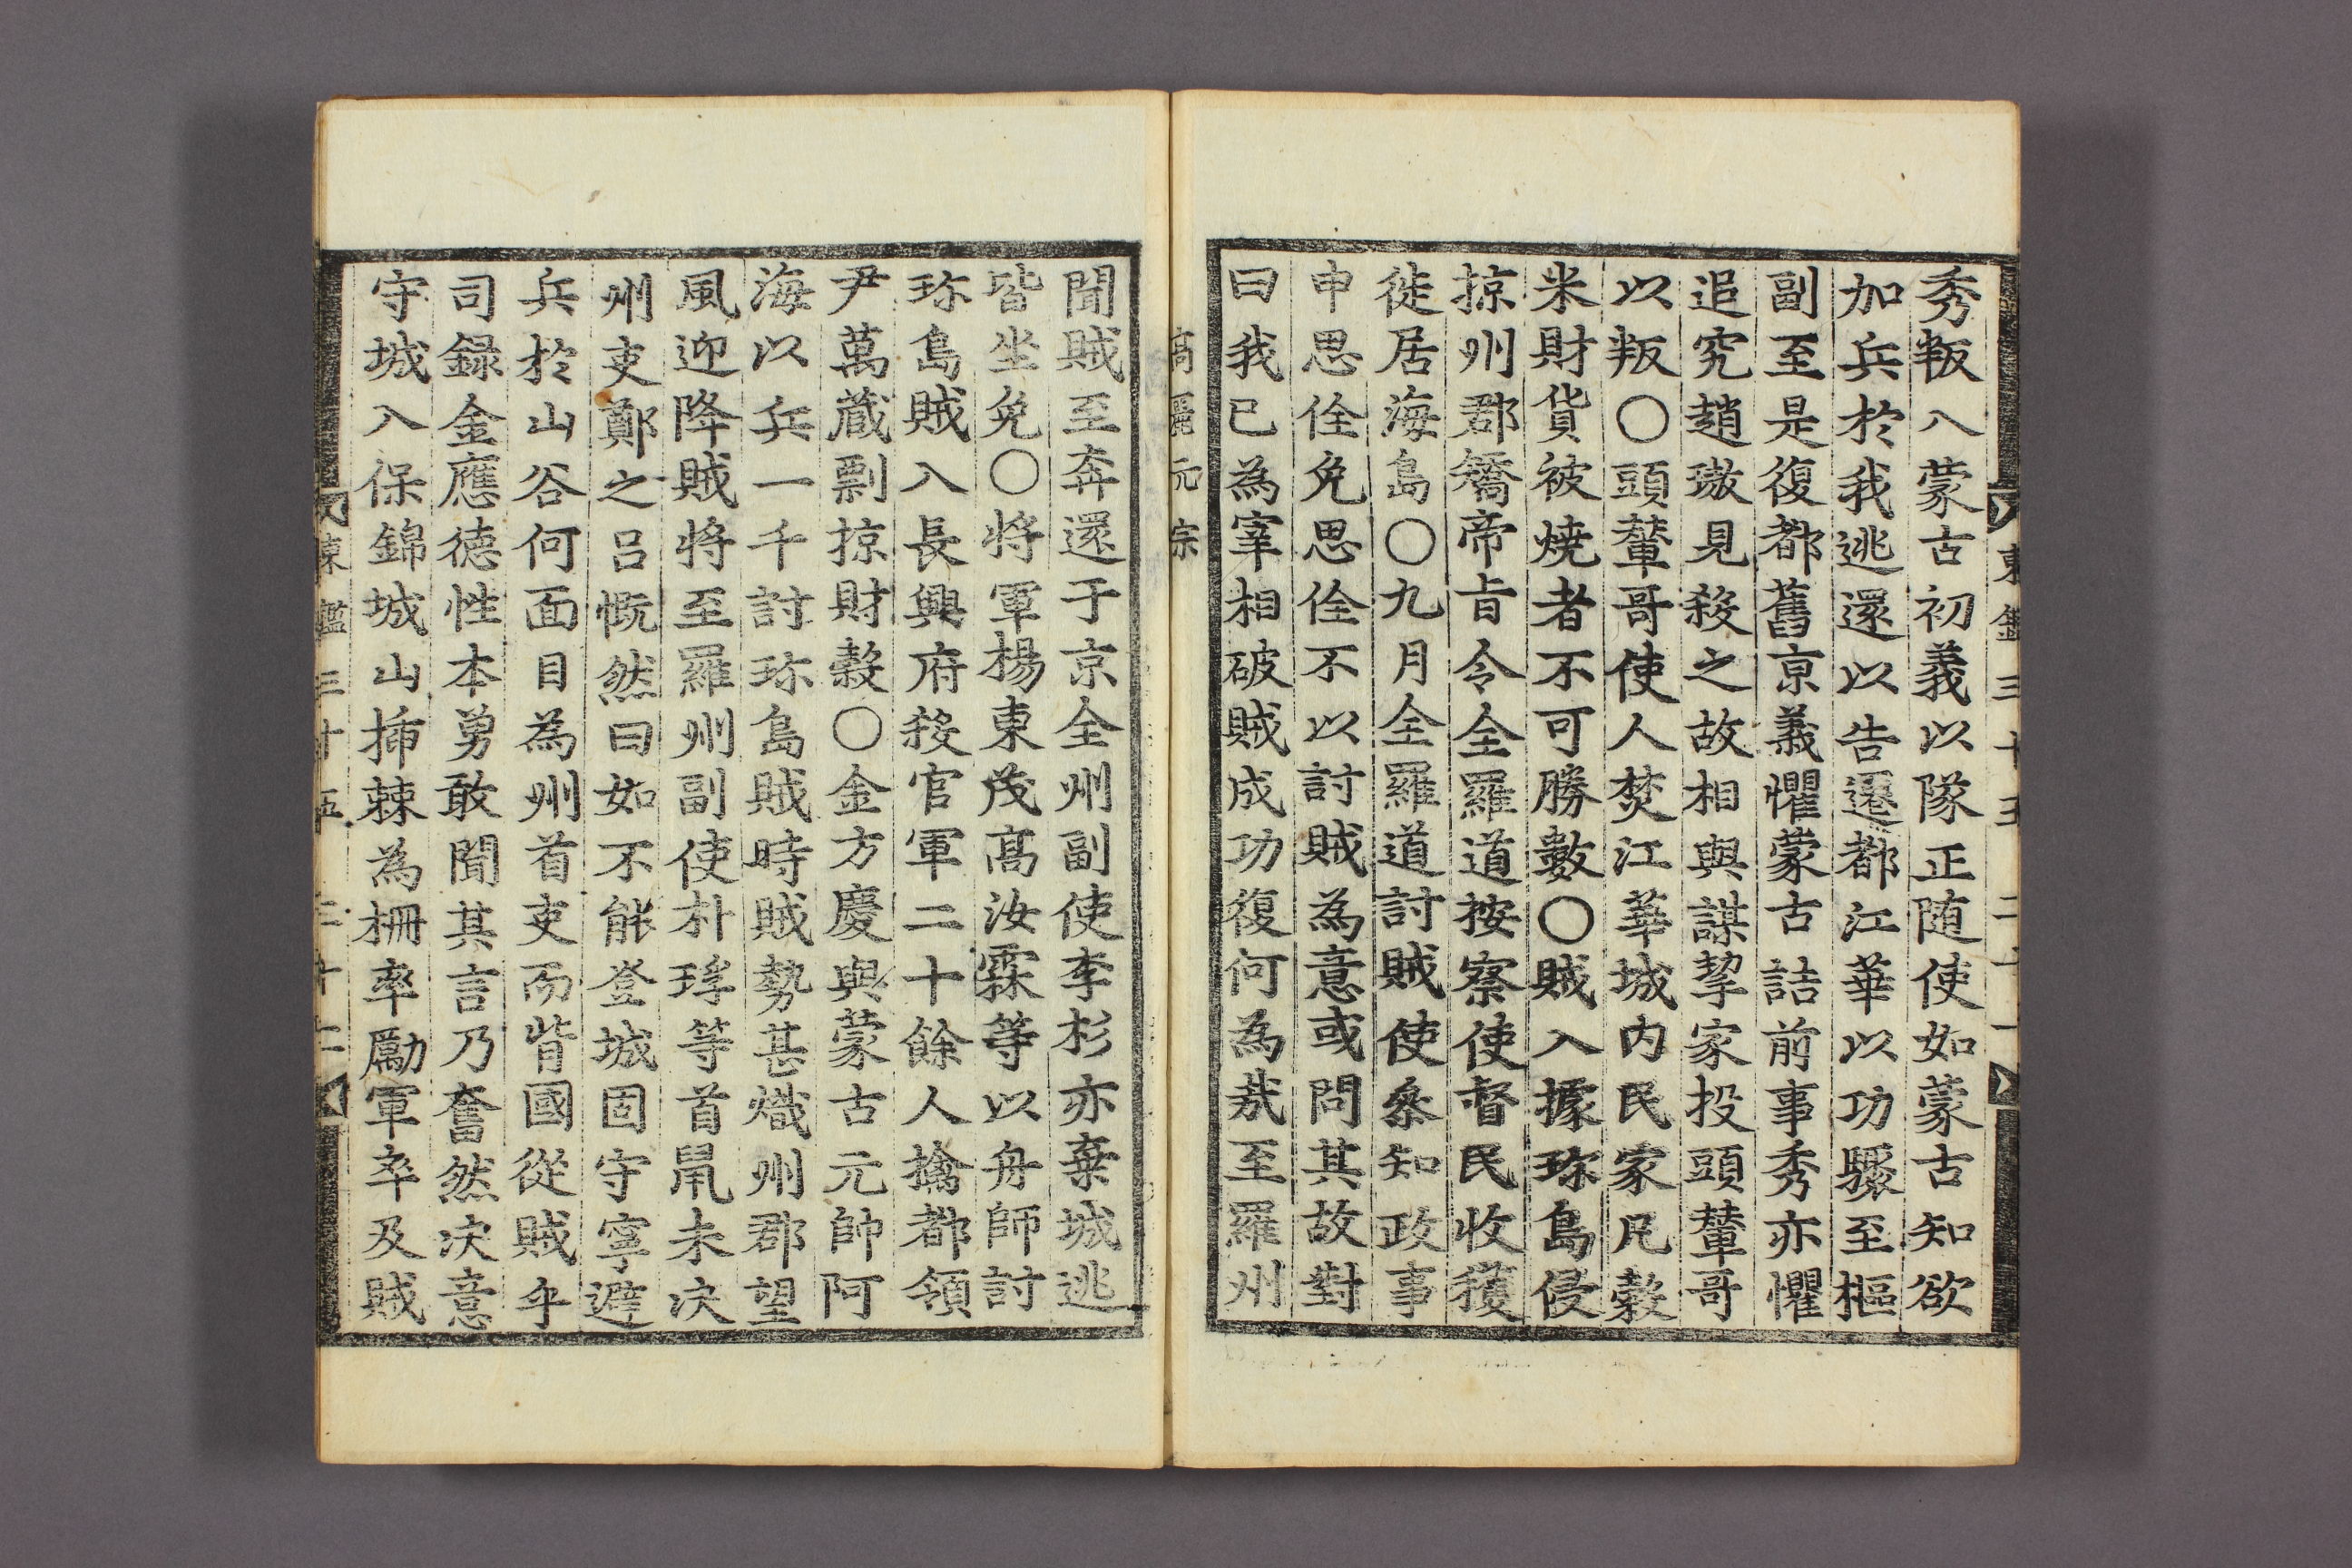 秀叛入蒙古初義以隊正随使如蒙古知欲
加兵於我逃還以告遷都江華以功驟至樞
副至是復都舊京義懼蒙古詰前事秀亦懼
追究趙璈見殺之故相與謀挈家投頭輦哥
以叛〇頭輦哥使人焚江華城內民家凡穀
米財貨被燒者不可勝數〇賊入據珎島侵
掠州郡矯帝旨令全羅道按察使督民收獲
徙居海島〇九月全羅道討賊使叅知政事
申思佺免思佺不以討賊為意或問其故對
曰我已為宰相破賊成功復何為㢤至羅州
高麗元宗
聞賊至奔還于京全州副使李杉亦棄城逃
皆坐免〇將軍楊東茂高汝霖等以舟師討
珎島賊入長興府殺官軍二十餘人擒都領
尹萬蔵剽掠財穀〇金方慶與蒙古元帥阿
海以兵一千討珎島賊時賊勢甚熾州郡望
風迎降賊將至羅州副使朴琈等首鼠未决
州吏鄭之呂慨然曰如不能登城固守寧避
兵於山谷何面目為州首吏而背國從賊乎
司録金應德性本勇敢聞其言乃奮然决意
守城入保錦城山揷棘為柵率勵軍卒及賊